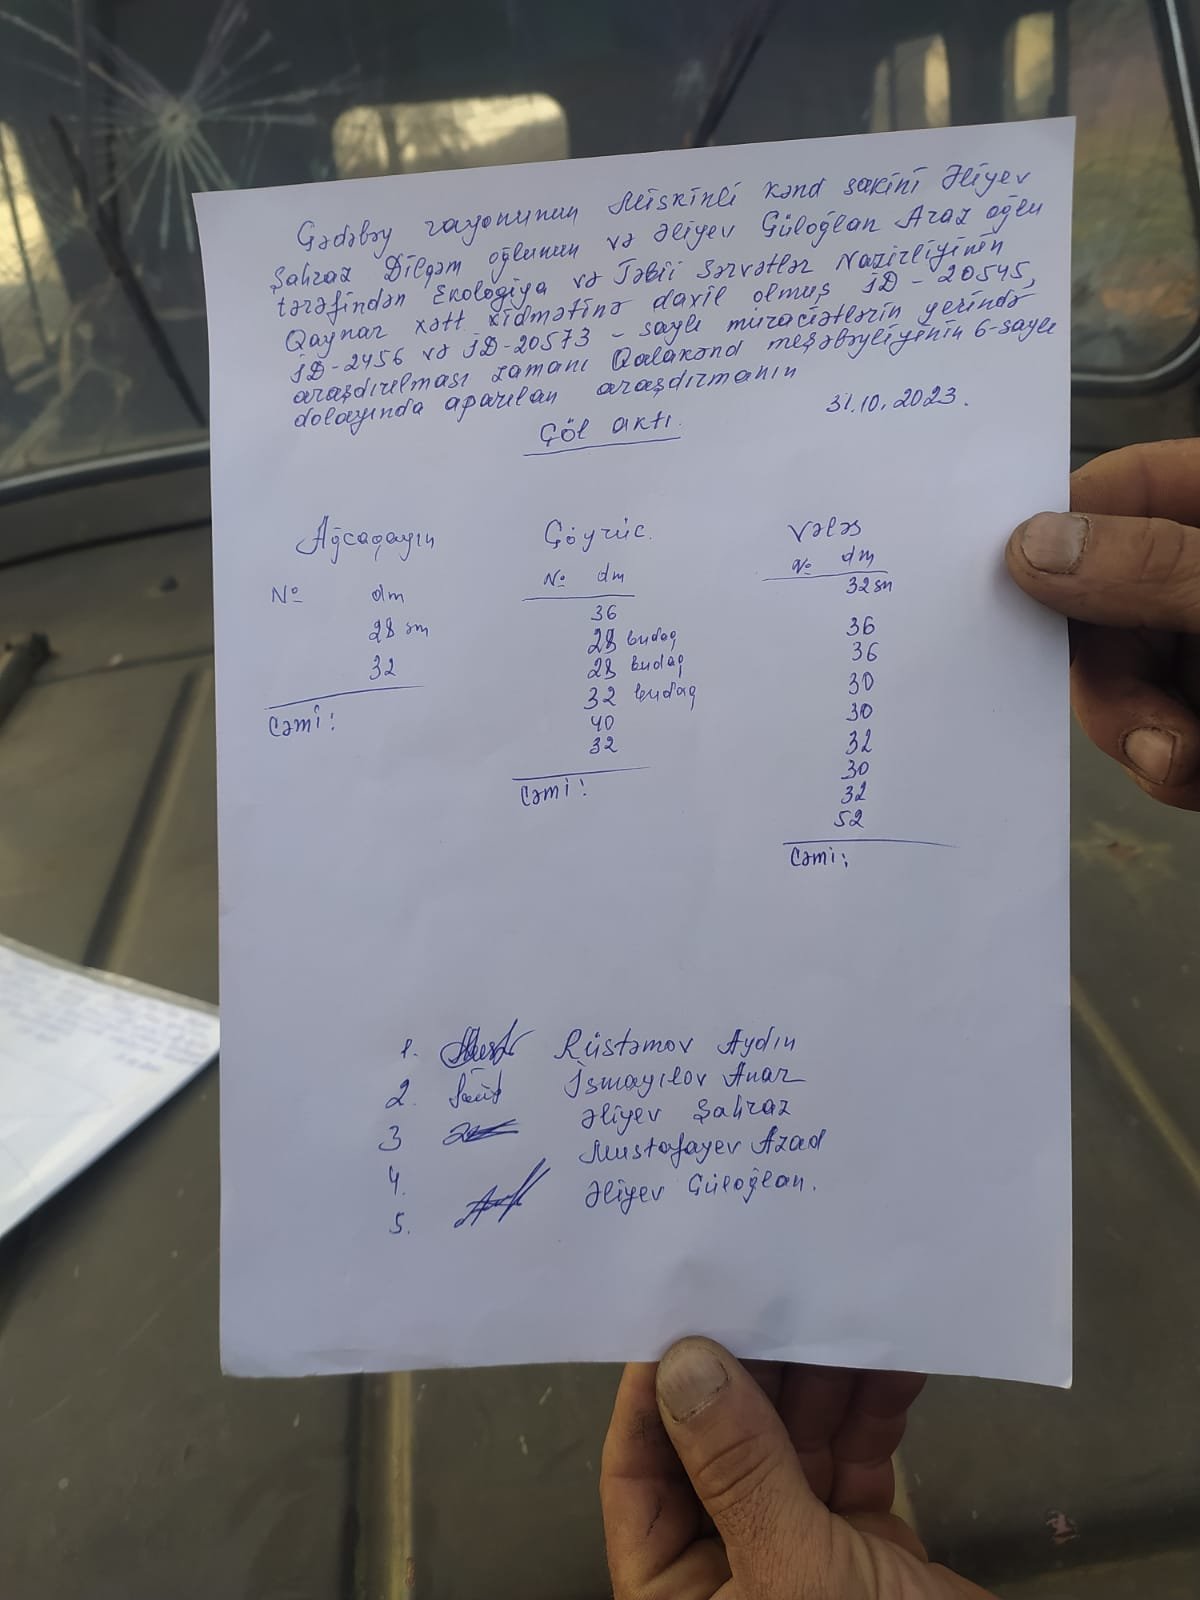 Gədəbəy rayonunun Miskinli kənd sakini Əliyev
Şahraz Dilqəm oğlunun və Əliyev Güloğlan Araz oğlu
tərəfindən Ekologiya və Təbii Sərvətlər Nazirliyinin
Qaynar xətt xidmətinə daxil olmuş İD-20545,
İD-2456 və İD-20573-saylı müraciətlərin yerində
araşdırılması zamanı Qalakənd meşəbəyliyinin 6-saylı
dolayında aparılan araşdırmanın
31.10.2023.
Çöl aktı.
Ağcaqayın
№ dm
28 sm
32
Cəmi:
Göyrüc.
№ dm
36
28 budaq
28 budaq
32 budaq
40
32
Cəmi:
Vələs
№ dm
32 sm
36
36
30
30
32
30
32
52
Cəmi:
1. Rüstəmov Aydın
2. İsmayılov Anar
3 Əliyev Şahraz
4. Mustafayev Azad
5. Əliyev Güloğlan.